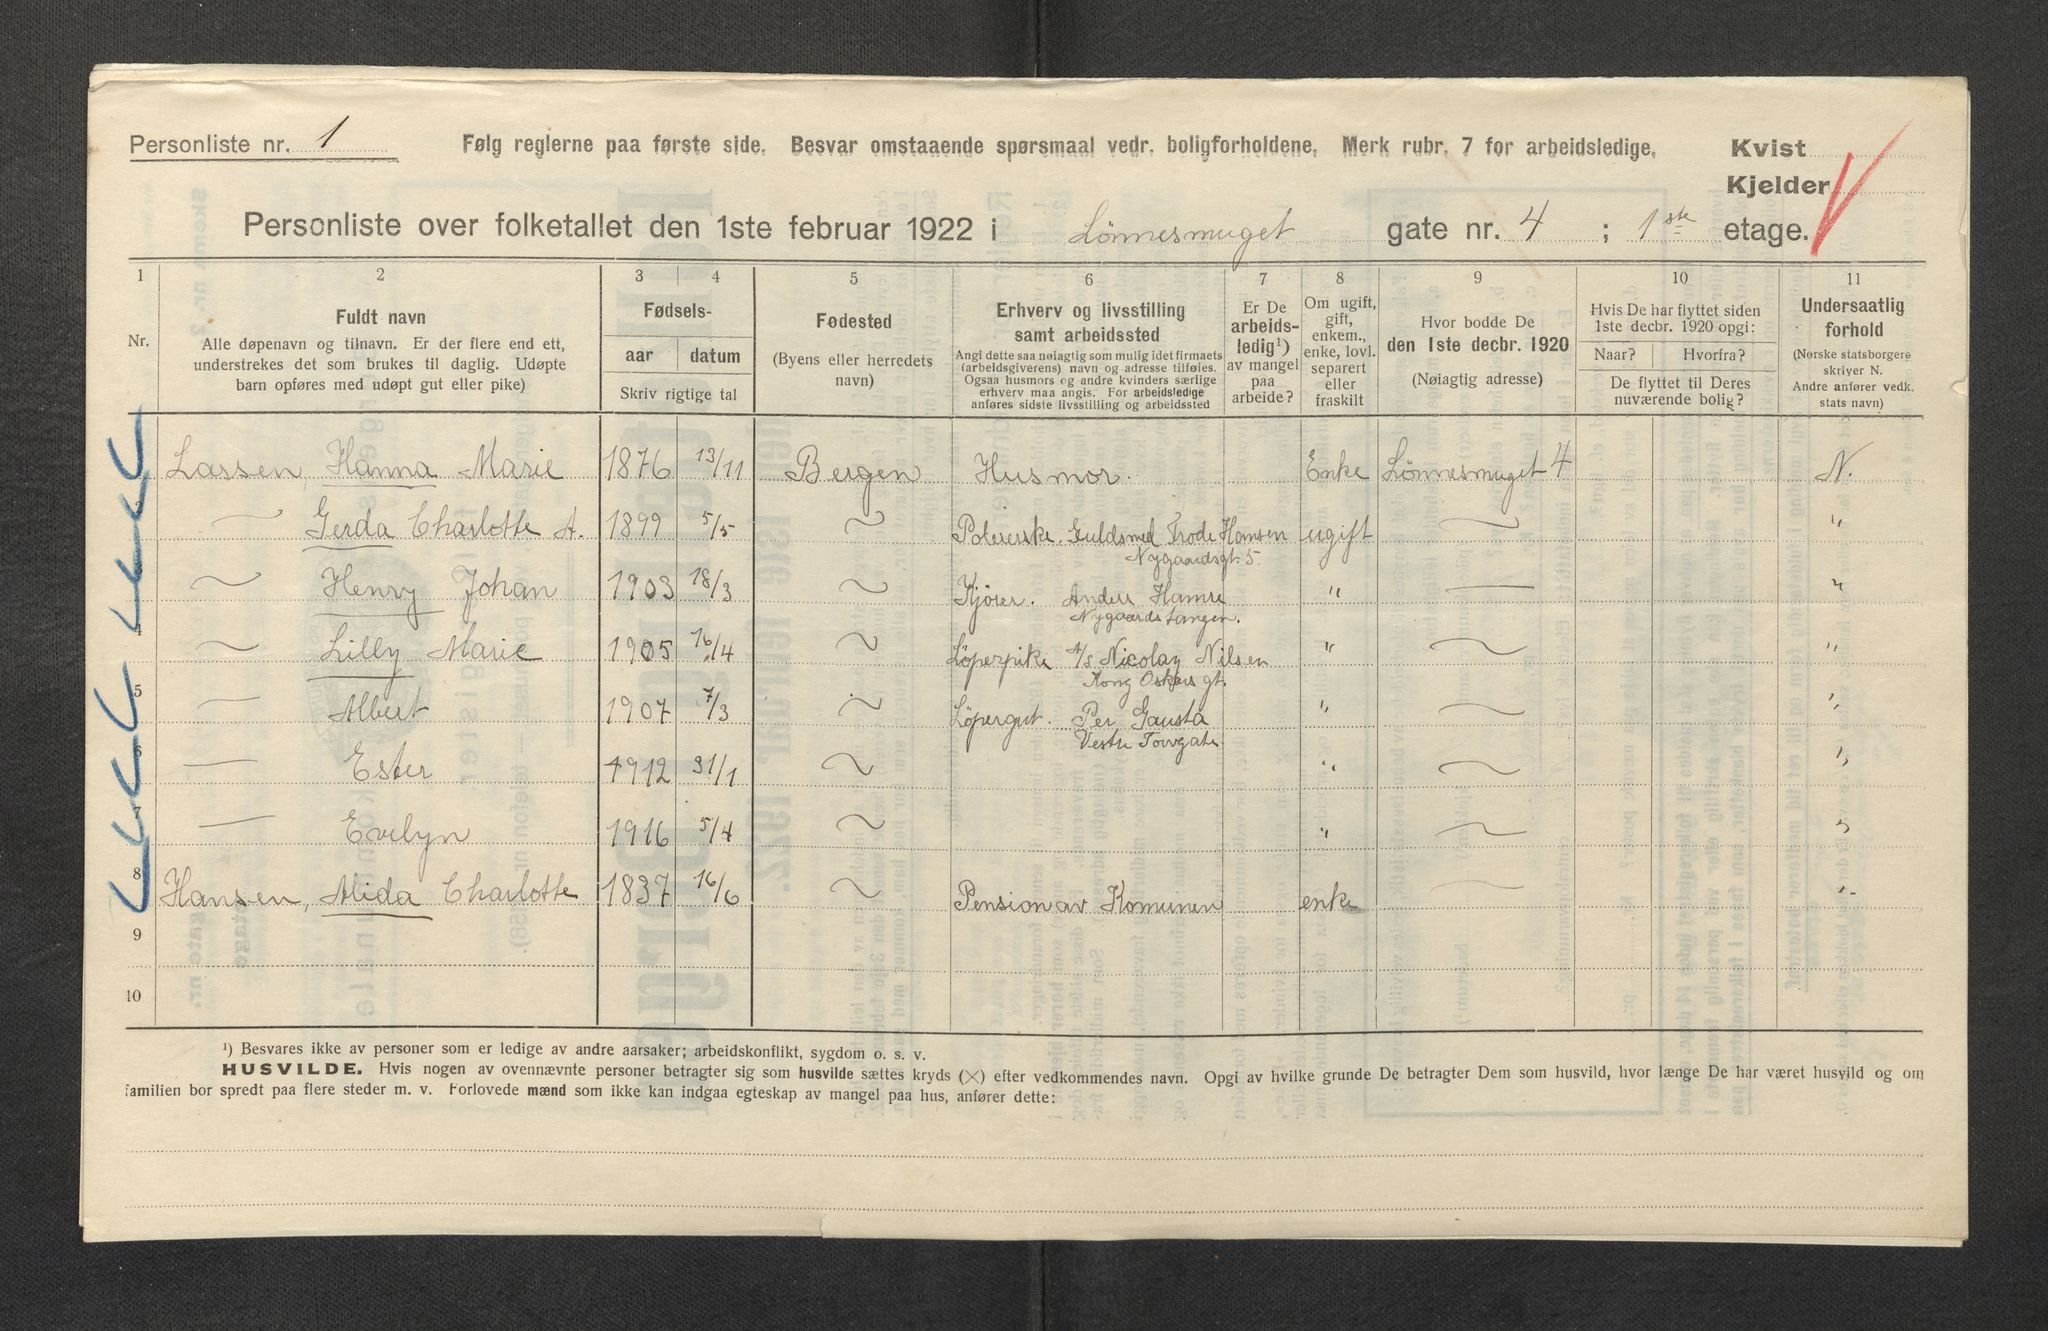 Personliste nr. 1 Følg reglerne paa første side. Besvar omstaaende spørsmaal vedr. boligforholdene. Merk rubr. 7 for arbeidsledige. Kvist
Kjelder
Personliste over folketallet den 1ste februar 1922 i Lönnesmuget gate nr. 4 ; 1ste etage.
1 2 3 4 5 6 7 8 9 10 11
Nr.
Fuldt navn
Alle døpenavn og tilnavn. Er der flere end ett,
understrekes det som brukes til daglig. Udøpte
barn opføres med udøpt gut eller pike)
Fødsels-
aar datum
Skriv rigtige tal
Fødested
(Byens eller herredets
navn)
Erhverv og livsstilling
samt arbeidssted
Angi dette saa nøiagtig som mulig idet firmaets
(arbeidsgiverens) navn og adresse tilføies.
Ogsaa husmors og andre kvinders særlige
erhverv maa angis. For arbeidsledige
anføres sidste livsstilling og arbeidssted
Er De
arbeids-
ledig¹)
av mangel
paa
arbeide?
Om ugift,
gift,
enkem.,
enke, lovl.
separert
eller
fraskilt
Hvor bodde De
den 1ste decbr. 1920
(Nøiagtig adresse)
Hvis De har flyttet siden
1ste decbr. 1920 opgi:
Naar? Hvorfra?
De flyttet til Deres
nuværende bolig?
Undersaatlig
forhold
(Norske statsborgere
skriver N.
Andre anfører vedk.
stats navn)
Lassen, Hanna Marie 1876 13/11 Bergen Husmor. Enke Lönnesmuget 4 N.
2 — Gerda Charlotte A. 1899 5/5 ~ Polererske Guldsmed Frode Hansen ugift ~ "
Nygaardsgt. 5.
3 ~ Henry Johan 1903 18/3 ~ Kjörer. Anders Hamre " ~ "
Nygaardstangen.
4 ~ Lilly Marie 1905 16/4 ~ Löperpike A/S Nicolay Nilsen " ~ "
Kong Oskars gt.
5 — Albert 1907 7/3 ~ Löpergut. Per Gausta " ~ "
Vestre Torvgate
6 — Ester 1912 31/1 ~ " ~ "
7 — Evelyn 1916 5/4 ~ " ~ "
8 Hansen, Alida Charlotte 1837 16/6 ~ Pension av Komunen enke ~ "
9
10
¹) Besvares ikke av personer som er ledige av andre aarsaker; arbeidskonflikt, sygdom o. s. v.
HUSVILDE. Hvis nogen av ovennævnte personer betragter sig som husvilde sættes kryds (×) efter vedkommendes navn. Opgi av hvilke grunde De betragter Dem som husvild, hvor længe De har været husvild og om
familien bor spredt paa flere steder m. v. Forlovede mænd som ikke kan indgaa egteskap av mangel paa hus, anfører dette: